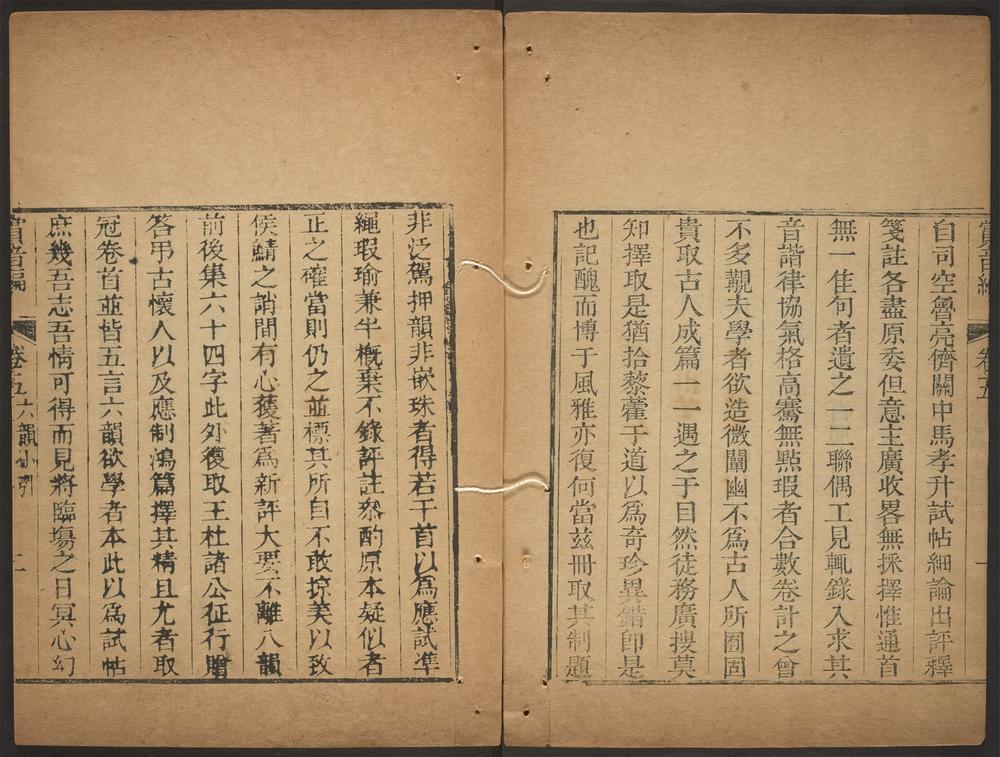 賞音編
卷五
一
自司空魯亮儕關中馬孝升試帖細論出評釋
箋註各盡原委但意主廣收畧無採擇惟通首
無一佳句者遺之一二聯偶工見輒錄入求其
音諧律協氣格高騫無點瑕者合數卷計之曾
不多覯夫學者欲造微闡幽不爲古人所囿固
貴取古人成篇一一遇之于目然徒務廣搜莫
知擇取是猶拾藜藿于道以爲奇珍異錯卽是
也記醜而博于風雅亦復何當茲冊取其制題
非泛駕押韻非嵌珠者得若干首以爲應試準
繩瑕瑜兼半槪棄不錄評註叅酌原本疑似者
正之確當則仍之並標其所自不敢掠美以致
侯鯖之誚間有心獲著爲新評大要不離八韻
前後集六十四字此外復取王杜諸公征行贈
答弔古懷人以及應制鴻篇擇其精且尤者取
冠卷首並皆五言六韻欲學者本此以爲試帖
庶幾吾志吾情可得而見將臨場之日冥心幻
賞音編
卷五六韻小引
二